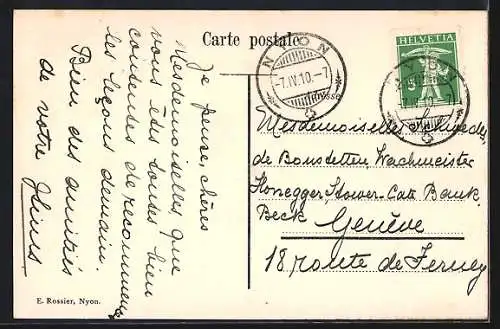 Carte postale.
HELVETIA
5
NYON
-7.IV.10.-7
NYON
7.IV.10.
Je pense, chères
Mesdemoiselles que
vous êtes toutes bien
contentes de recommencer
les leçons demain.
Bien des amitiés
de votre
Mesdemoiselles
de Bonstetten, Wachmeister
Honegger, Stower-Catz Bank,
Beck
Genève
18 route de Ferney
E. Rossier, Nyon.